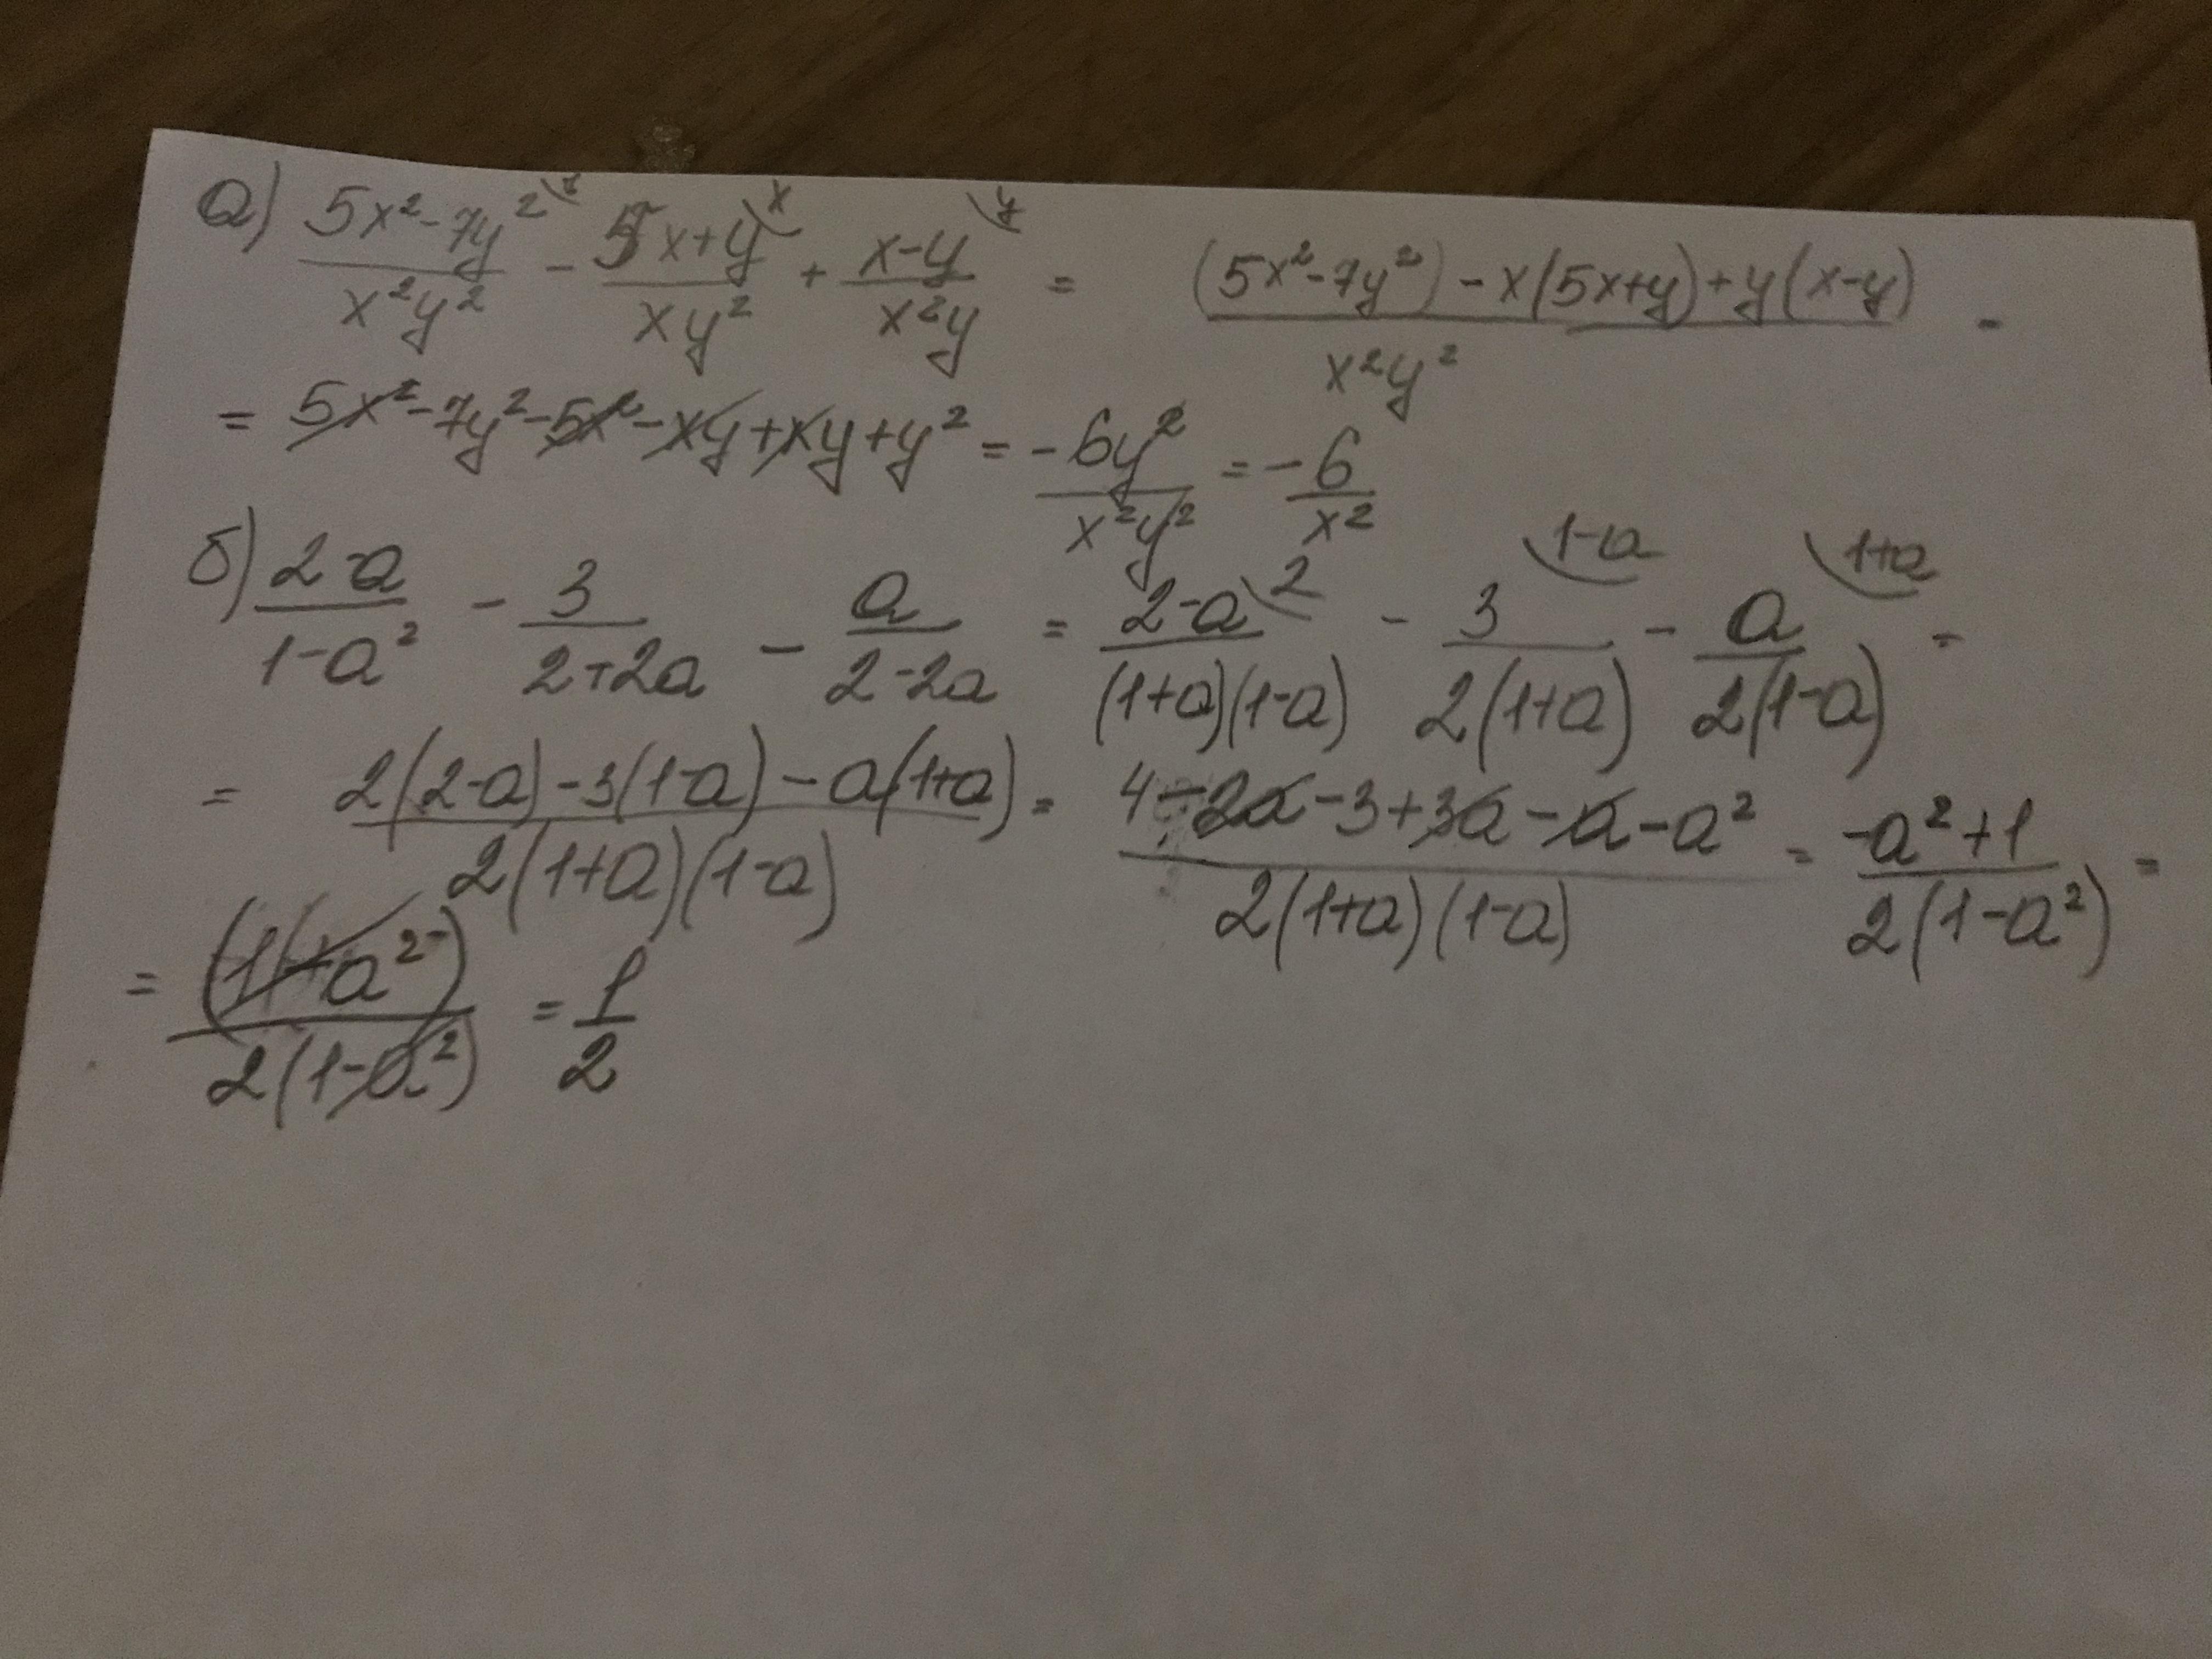 а) (5x²-7y²)/(x²y²) - (5x+y)/(xy²) + (x-y)/(x²y) = ((5x²-7y²)-x(5x+y)+y(x-y))/(x²y²) -
= 5x²-7y²-5x²-xy+xy+y² = (-6y²)/(x²y²) = -6/x²
б) (2-a)/(1-a²) - 3/(2+2a) - a/(2-2a) = (2-a)/((1+a)(1-a)) - 3/(2(1+a)) - a/(2(1-a)) =
= (2(2-a)-3(1-a)-a(1+a))/(2(1+a)(1-a)) = (4-2a-3+3a-a-a²)/(2(1+a)(1-a)) = (-a²+1)/(2(1-a²)) =
= /(2(1-a²)) = 1/2